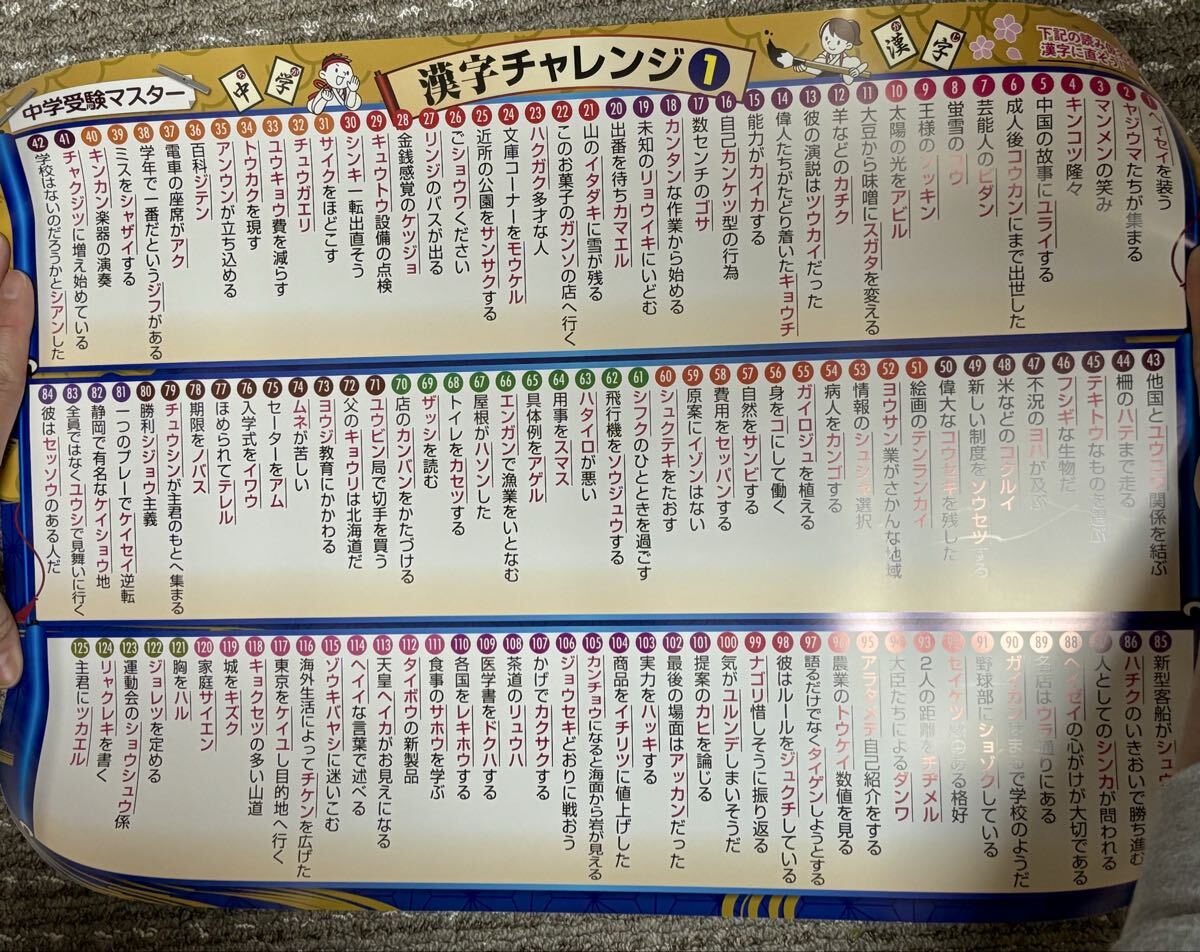 中学受験マスター
中
学
漢字チャレンジ1
漢
字
下記の読みの
漢字に直そう
1 ヘイセイを装う
2 ヤジウマたちが集まる
3 マンメンの笑み
4 キンコツ隆々
5 中国の故事にユライする
6 成人後コウカンにまで出世した
7 芸能人のビダン
8 蛍雪のコウ
9 王様のソッキン
10 太陽の光をアビル
11 大豆から味噌にスガタを変える
12 羊などのカチク
13 彼の演説はツウカイだった
14 偉人たちがたどり着いたキョウチ
15 能力がカイカする
16 自己カンケツ型の行為
17 数センチのゴサ
18 カンタンな作業から始める
19 未知のリョウイキにいどむ
20 出番を待ちカマエル
21 山のイタダキに雪が残る
22 このお菓子のガンソの店へ行く
23 ハクガク多才な人
24 文庫コーナーをモウケル
25 近所の公園をサンサクする
26 ごショウワください
27 リンジのバスが出る
28 金銭感覚のケツジョ
29 キュウトウ設備の点検
30 シンキ一転出直そう
31 サイクをほどこす
32 チュウガエリ
33 ユウキョウ費を減らす
34 トウカクを現す
35 アンウンが立ち込める
36 百科ジテン
37 電車の座席がアク
38 学年で一番だというジフがある
39 ミスをシャザイする
40 キンカン楽器の演奏
41 チャクジツに増え始めている
42 学校はないのだろうかとシアンした
43 他国とユウコウ関係を結ぶ
44 柵のハテまで走る
45 テキトウなものを選ぶ
46 フシギな生物だ
47 不況のヨハが及ぶ
48 米などのコクルイ
49 新しい制度をソウセツする
50 偉大なコウセキを残した
51 絵画のテンランカイ
52 ヨウサン業がさかんな地域
53 情報のシュシャ選択
54 病人をカンゴする
55 ガイロジュを植える
56 身をコにして働く
57 自然をサンビする
58 費用をセッパンする
59 原案にイゾンはない
60 シュクテキをたおす
61 シフクのひとときを過ごす
62 飛行機をソウジュウする
63 ハタイロが悪い
64 用事をスマス
65 具体例をアゲル
66 エンガンで漁業をいとなむ
67 屋根がハソンした
68 トイレをカセツする
69 ザッシを読む
70 店のカンバンをかたづける
71 ユウビン局で切手を買う
72 父のキョウリは北海道だ
73 ヨウジ教育にかかわる
74 ムネが苦しい
75 セーターをアム
76 入学式をイワウ
77 ほめられてテレル
78 期限をノバス
79 チュウシンが主君のもとへ集まる
80 勝利シジョウ主義
81 一つのプレーでケイセイ逆転
82 静岡で有名なケイショウ地
83 全員ではなくユウシで見舞いに行く
84 彼はセッソウのある人だ
85 新型客船がシュウ
86 ハチクのいきおいで勝ち進む
87 人としてのシンカが問われる
88 ヘイゼイの心がけが大切である
89 名店はウラ通りにある
90 ガイカンはまるで学校のようだ
91 野球部にショゾクしている
92 セイケツ感ある格好
93 2人の距離をチヂメル
94 大臣たちによるダンワ
95 アラタメテ自己紹介をする
96 農業のトウケイ数値を見る
97 語るだけでなくタイゲンしようとする
98 彼はルールをジュクチしている
99 ナゴリ惜しそうに振り返る
100 気がユルンデしまいそうだ
101 提案のカヒを論じる
102 最後の場面はアッカンだった
103 実力をハッキする
104 商品をイチリツに値上げした
105 カンチョウになると海面から岩が見える
106 ジョウセキどおりに戦おう
107 かげでカクサクする
108 茶道のリュウハ
109 医学書をドクハする
110 各国をレキホウする
111 食事のサホウを学ぶ
112 タイボウの新製品
113 天皇ヘイカがお見えになる
114 ヘイイな言葉で述べる
115 ゾウキバヤシに迷いこむ
116 海外生活によってチケンを広げた
117 東京をケイユし目的地へ行く
118 キョクセツの多い山道
119 城をキズク
120 家庭サイエン
121 胸をハル
122 ジョレツを定める
123 運動会のショウシュウ係
124 リャクレキを書く
125 主君にツカエル